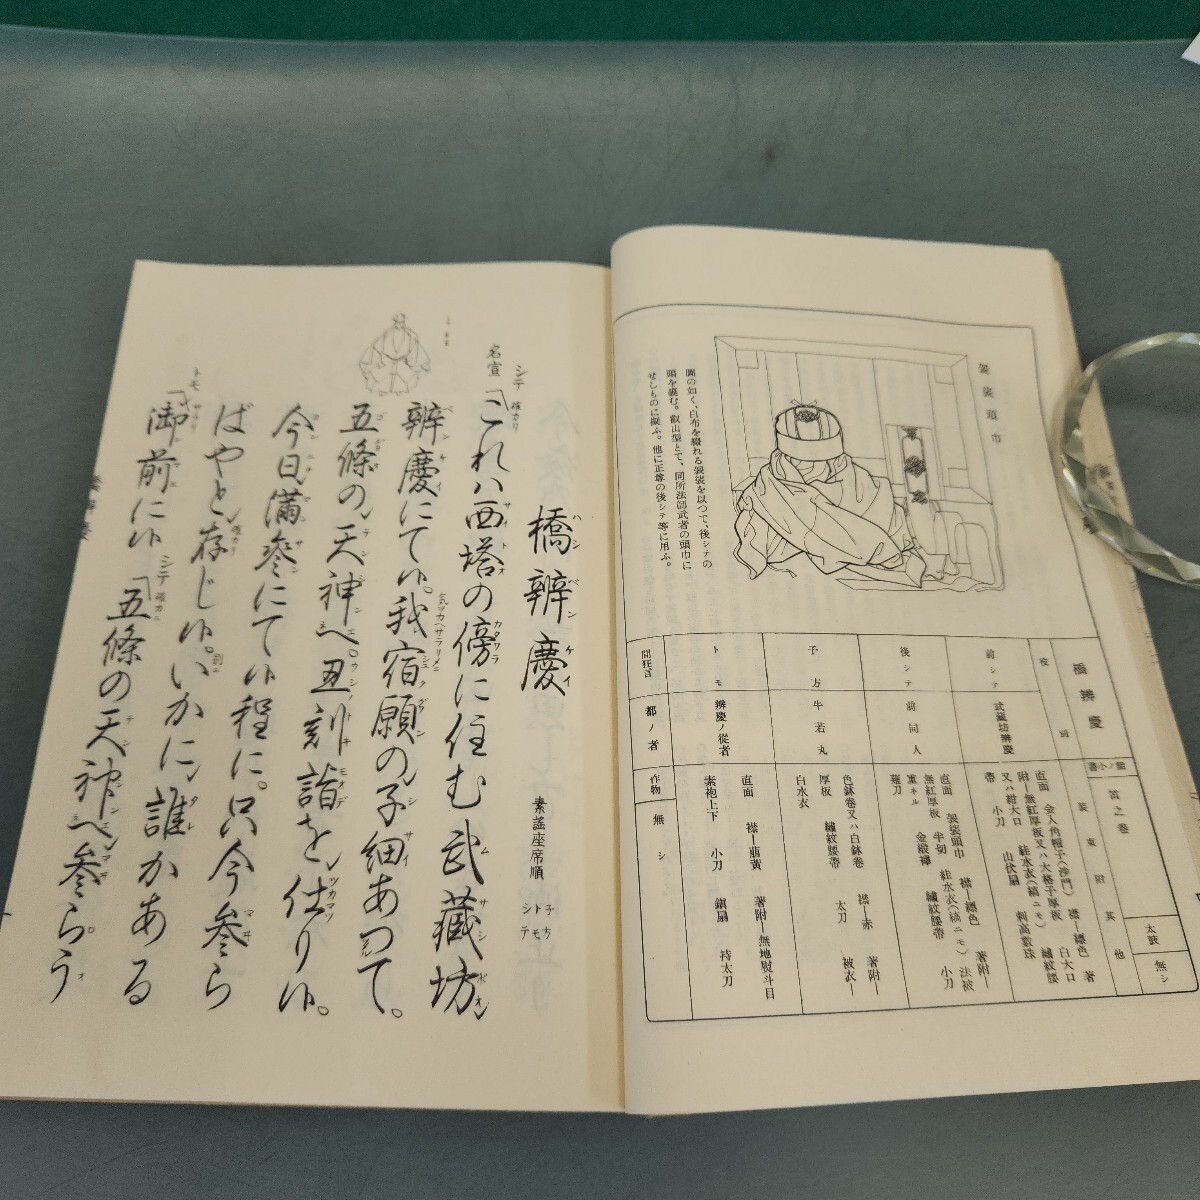 袈裟頭巾
圖の如く、白布を綴れる袈裟を以つて、後シテの
頭を裹む。叡山型とて、同所法師武者の頭巾に
せしものに擬ふ。他に正尊の後シテ等に用ふ。
橋辨慶
笛之卷
太鼓 無シ
裝束附其他
前シテ 武藏坊辨慶
直面 金入角帽子(沙門) 襟―縹色 著
附―無紅厚板又ハ大格子厚板 白大口
又ハ紺大口 絓水衣(縞ニモ) 繡紋腰
帶 小刀 山伏扇 刺高數珠
後シテ 前同人
直面 袈裟頭巾 襟―縹色 著附―
無紅厚板 半切 絓水衣(縞ニモ) 法被
重ネル 金緞襷 繡紋腰帶 小刀
薙刀
子方 牛若丸
色鉢卷又ハ白鉢卷 襟―赤 著附―
厚板 繡紋腰帶 太刀 被衣―
白水衣
トモ 辨慶ノ從者
直面 襟―萠黃 著附―無地熨斗目
素袍上下 小刀 鎭扇 待太刀
間狂言 都ノ者
作物 無シ
橋辨慶
ハシベンケイ
素謠座席順
子方
トモ
シテ
シテ 名宣 確カリ
「これハ西塔の傍に住む武藏坊
辨慶にてい。我宿願の子細あつて。
五條の天神へ。丑刻詣を仕りい。
今日滿參にてい程に。只今參ら
ばやと存じい。いかに誰かある
トモ サラリ
「御前にい シテ 確カニ 「五條の天神へ參らう